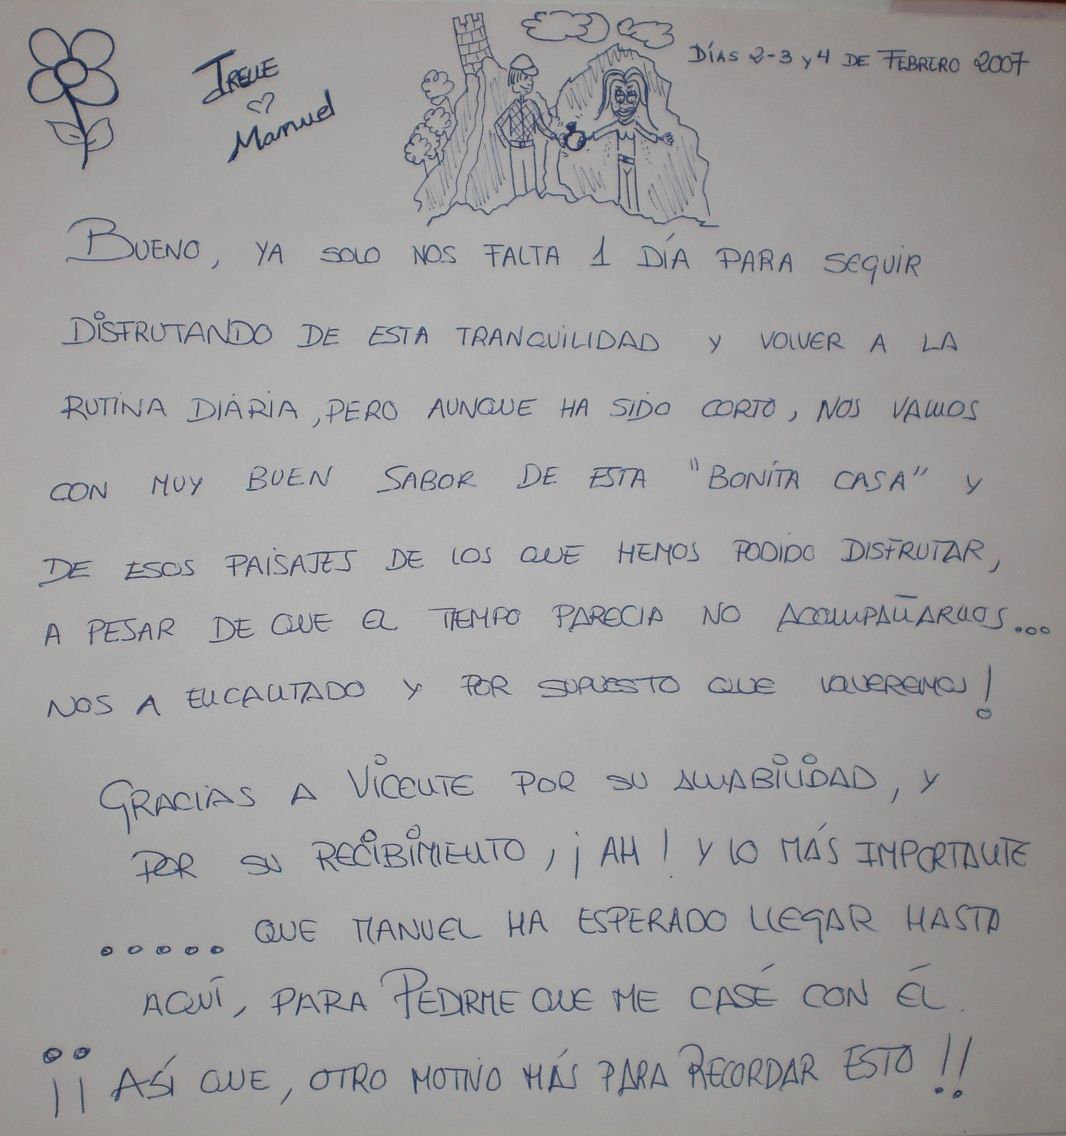 Irene
♡
Manuel
DÍAS 2-3 y 4 DE FEBRERO 2007
BUENO, YA SOLO NOS FALTA 1 DÍA PARA SEGUIR
DISFRUTANDO DE ESTA TRANQUILIDAD Y VOLVER A LA
RUTINA DIÁRIA, PERO AUNQUE HA SIDO CORTO, NOS VAMOS
CON MUY BUEN SABOR DE ESTA "BONÍTA CASA" Y
DE ESOS PAISAJES DE LOS QUE HEMOS PODIDO DISFRUTAR,
A PESAR DE QUE EL TIEMPO PARECIA NO ACOMPAÑARNOS...
NOS A ENCANTADO Y POR SUPUESTO QUE VOLVEREMOS!
GRACIAS A VICENTE POR SU AMABILIDAD, Y
POR SU RECIBIMIENTO, ¡AH! Y LO MÁS IMPORTANTE
..... QUE MANUEL HA ESPERADO LLEGAR HASTA
AQUÍ, PARA PEDIRME QUE ME CASÉ CON ÉL.
¡¡ASÍ QUE, OTRO MOTIVO MÁS PARA RECORDAR ESTO!!